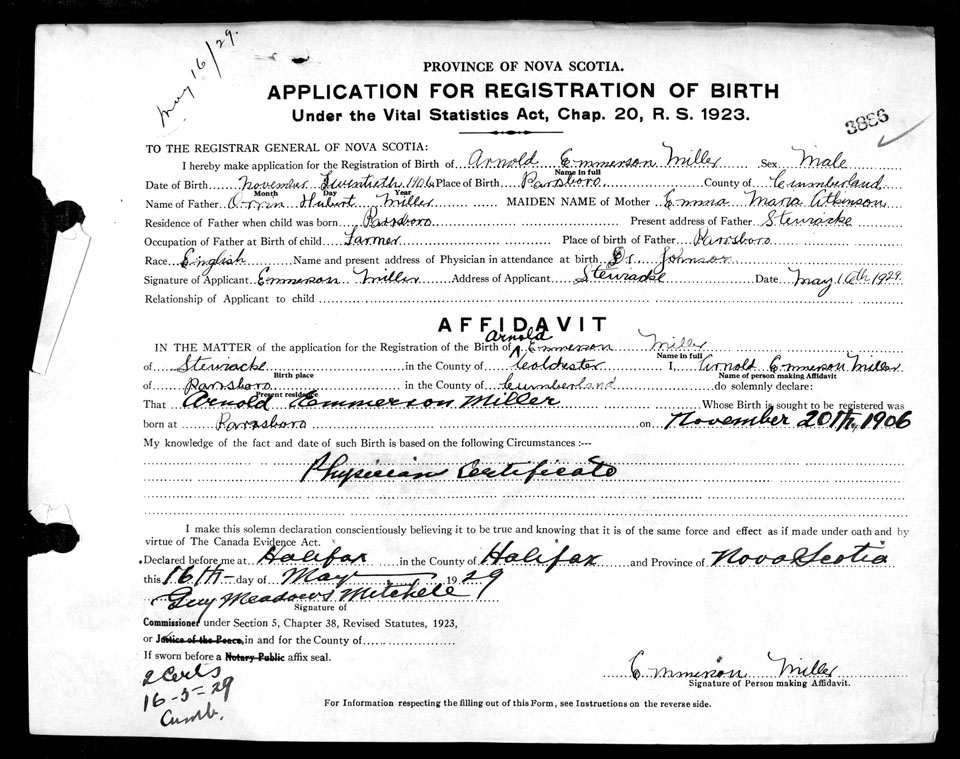 May 16/29.
PROVINCE OF NOVA SCOTIA.
APPLICATION FOR REGISTRATION OF BIRTH
Under the Vital Statistics Act, Chap. 20, R. S. 1923.
3886
TO THE REGISTRAR GENERAL OF NOVA SCOTIA:
I hereby make application for the Registration of Birth of Arnold Emmerson Miller Sex Male
Name in full
Date of Birth November Twentieth 1906 Place of Birth Parrsboro County of Cumberland
Month Day Year
Name of Father Orrin Huburt Miller MAIDEN NAME of Mother Emma Maria Atkinson
Residence of Father when child was born Parrsboro Present address of Father Stewiacke
Occupation of Father at Birth of child Farmer Place of birth of Father Parrsboro
Race English Name and present address of Physician in attendance at birth Dr Johnson
Signature of Applicant Emmerson Miller Address of Applicant Stewiacke Date May 16th 1929.
Relationship of Applicant to child
AFFIDAVIT
IN THE MATTER of the application for the Registration of the Birth of Arnold Emmerson Miller
Name in full
of Stewiacke in the County of Colchester I, Arnold Emmerson Miller
Birth place Name of person making Affidavit
of Parrsboro in the County of Cumberland do solemnly declare:
Present residence
That Arnold Emmerson Miller Whose Birth is sought to be registered was
born at Parrsboro on November 20th, 1906
My knowledge of the fact and date of such Birth is based on the following Circumstances :--
Physician Certificate
I make this solemn declaration conscientiously believing it to be true and knowing that it is of the same force and effect as if made under oath and by
virtue of The Canada Evidence Act.
Declared before me at Halifax in the County of Halifax and Province of Nova Scotia
this 16th day of May 1929
Guy Meadows Mitchell
Signature of
Commissioner under Section 5, Chapter 38, Revised Statutes, 1923,
or Justice of the Peace, in and for the County of
If sworn before a Notary Public affix seal.
2 Certs
16-5-29
Cumb.
Emmerson Miller
Signature of Person making Affidavit.
For Information respecting the filling out of this Form, see Instructions on the reverse side.